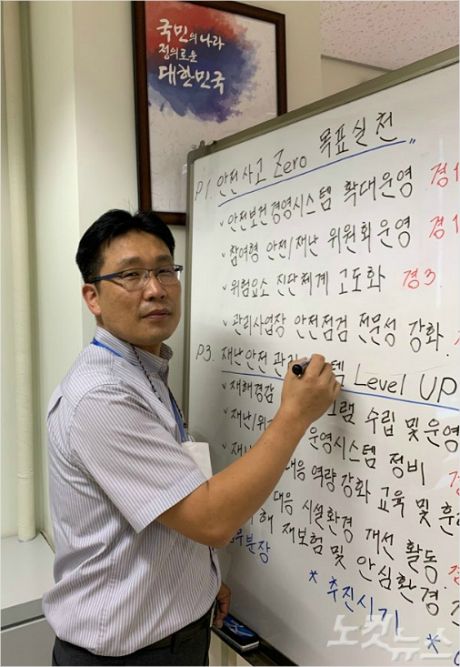 국민의 나라
정의로운
대한민국
P1. 안전사고 Zero 목표실천
안전보건경영시스템 확대운영 경1
참여형 안전/재난 위원회운영 경1
위험요소 진단체계 고도화 경3
관리사업장 안전점검 전문성 강화
P3. 재난안전 관리 템 Level UP
재해경감
재난/위 그램 수립 및 운영
운영시스템 정비
대응 역량강화 교육 및 훈
대응 시설환경 개선 활동
해 재보험 및 안심환경
업무분장
* 추진시기
노컷뉴스